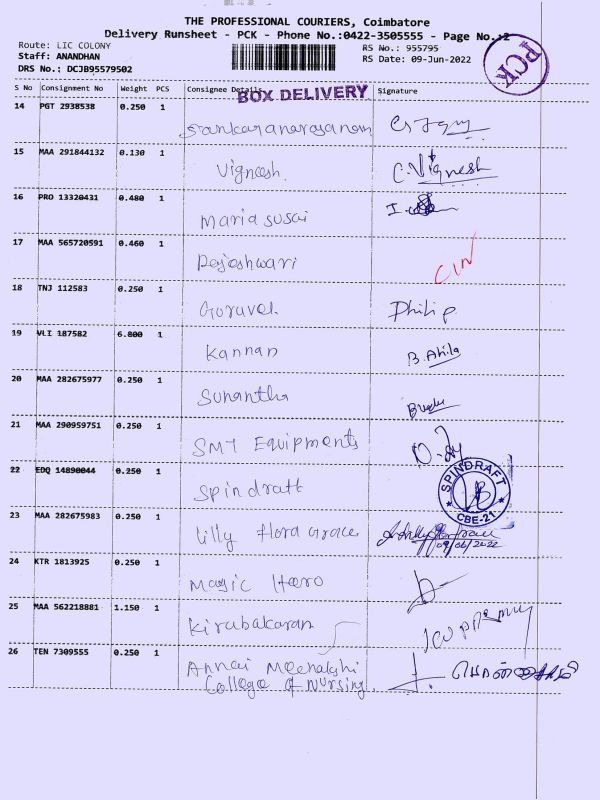 THE PROFESSIONAL COURIERS, Coimbatore
Delivery Runsheet - PCK - Phone No.:0422-3505555 - Page No.:2
Route: LIC COLONY
Staff: ANANDHAN
DRS No.: DCJB95579502
RS No.: 955795
RS Date: 09-Jun-2022
PCK
S No Consignment No Weight PCS Consignee Details Signature
BOX DELIVERY
14 PGT 2938538 0.250 1 Sankaranarayanan
15 MAA 291844132 0.130 1 Vignesh. C. Vignesh
16 PRO 13320431 0.480 1 Maria susai
17 MAA 565720591 0.460 1 Rajeshwari
18 TNJ 112583 0.250 1 Philip
19 VLI 187582 6.800 1 Kannan B. Ahila
20 MAA 282675977 0.250 1 Sunantha
21 MAA 290959751 0.250 1 SMT Equipments
22 EDQ 14890044 0.250 1 Spindraft SPINDRAFT CBE-21
23 MAA 282675983 0.250 1 Lilly Flora Grace 09/06/2022
24 KTR 1813925 0.250 1 Magic Hero
25 MAA 562218881 1.150 1 Kirubakaran
26 TEN 7309555 0.250 1 Annai Meenakshi
College of Nursing